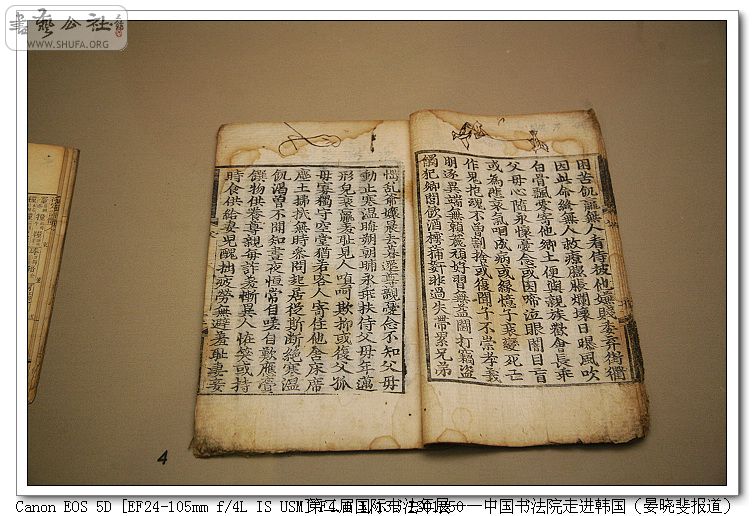 書藝公社
WWW.SHUFA.ORG
困苦飢羸無人看侍被他嫌賤委弃街衢
因此命終無人救療膨脹爛壞日曝風吹
白骨飄零寄他鄉土便與親族歡會長乖
父母心隨永懷憂念或因啼泣眼闇目盲
或為悲哀氣咽成病或緣憶子衰變死亡
作鬼抱魂不曾割捨或復聞子不崇孝義
朋逐異端無賴麁頑好習無益鬪打竊盜
觸犯鄉閭飲酒樗蒲姧非過失帶累兄弟
惱乱爺孃晨去暮還尊親憂念不知父母
動止寒温晦朔朝晡永乖扶侍父母年邁
形皃衰羸羞耻見人嗔呵欺抑或復父孤
母寡獨守空堂猶若客人寄住他舍床席
塵土拂拭無時參問起居從斯斷絕寒温
飢渴曾不聞知晝夜恒常自嗟自歎應賫
饌物供養尊親每詐羞慚異人恠笑或持
時食供給妻兒醜拙疲勞無避羞耻妻妾
4
Canon EOS 5D [EF24-105mm f/4L IS USM]
第二届国际书法年展——中国书法院走进韩国（晏晓斐报道）